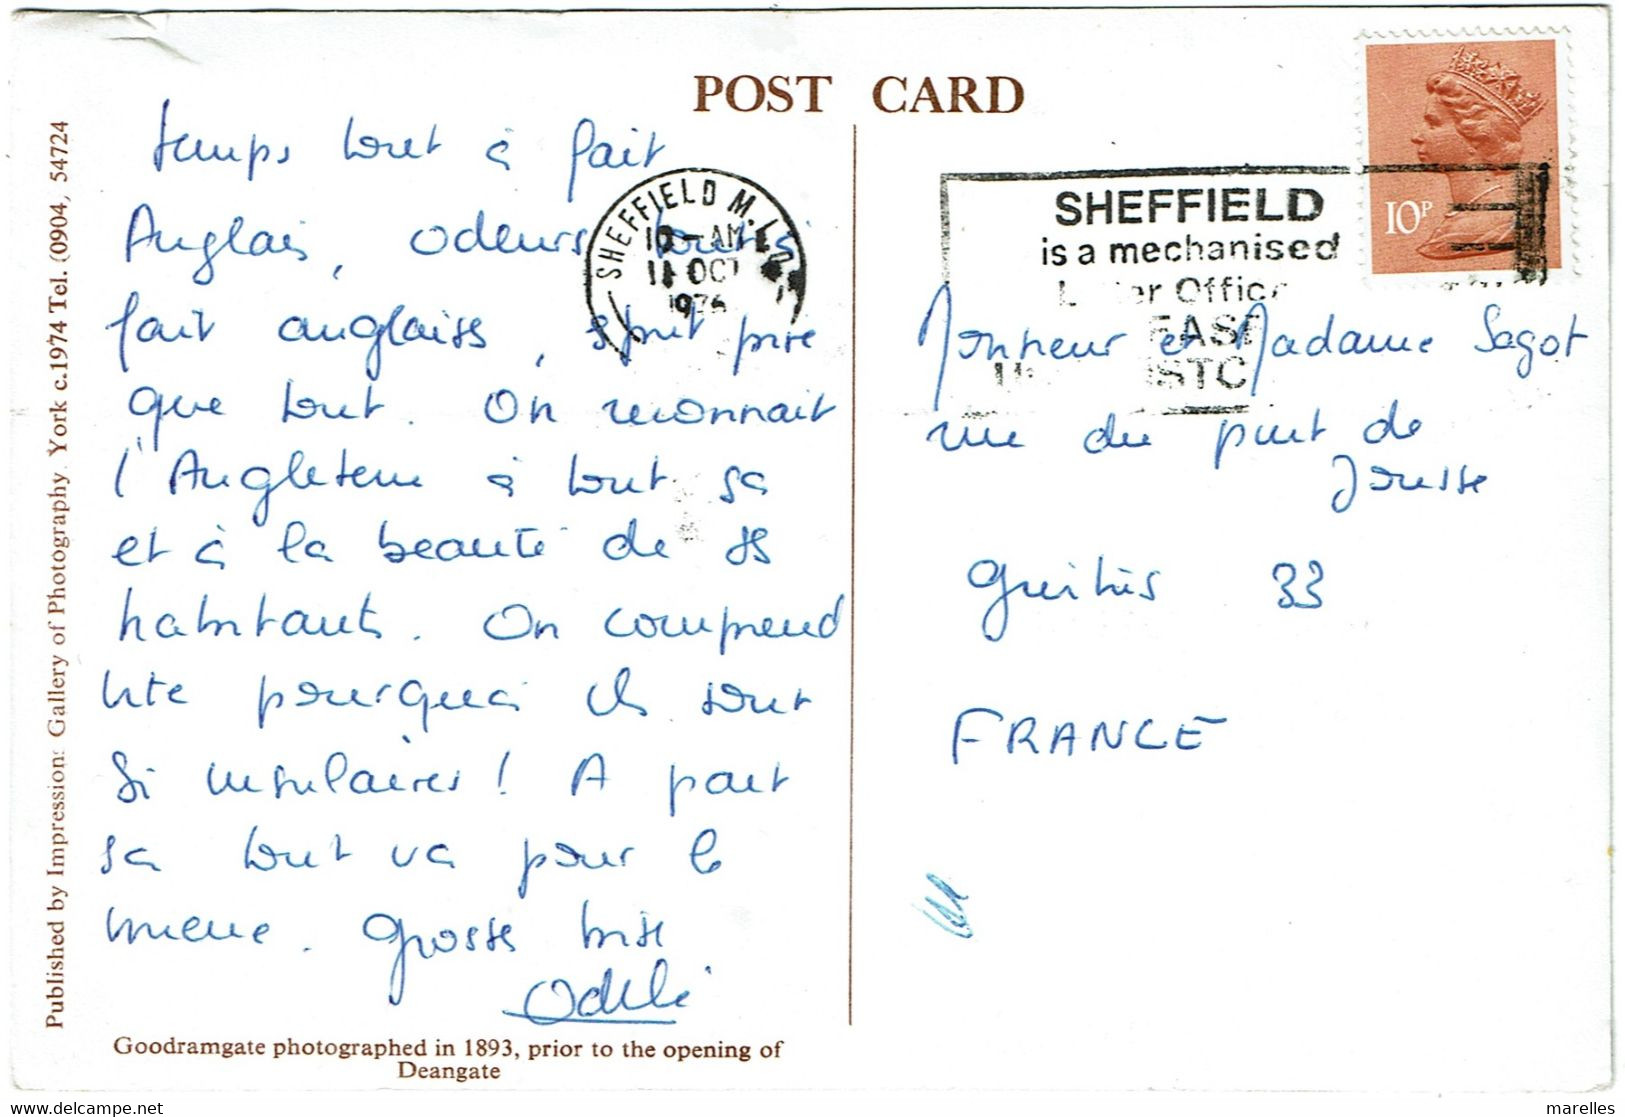 POST CARD
temps tout à fait
Anglais, odeurs tout à
fait anglaises, esprit pire
que tout. On reconnait
l'Angleterre à tout sa
et à la beauté de ses
habitants. On comprend
vite pourquoi ils sont
si insulaires! A part
sa tout va pour le
mieux. Grosses bises
Odile
Goodramgate photographed in 1893, prior to the opening of
Deangate
Published by Impressions Gallery of Photography. York c.1974 Tel. (0904, 54724
SHEFFIELD M.L.O.
10-AM
11 OCT
1976
SHEFFIELD
is a mechanised
Letter Office
10P
Monsieur et Madame Sagot
rue du port de
Jousse
Guitres 33
FRANCE
marelles